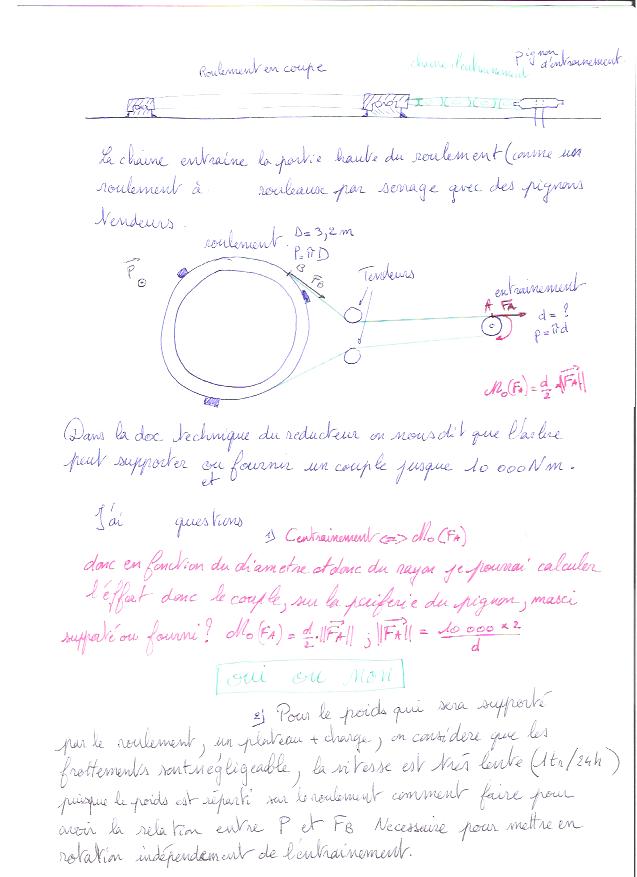 Roulement en coupe
chaine d'entrainement
pignon
d'entrainement
La chaine entraîne la partie haute du roulement (comme un
roulement à rouleaux par serrage avec des pignons
tendeurs.
roulement
D = 3,2 m
P = πD
B
F_B
P
Tendeurs
entrainement
A F_A
d = ?
p = πd
M₀(F_A) = d/2 × ||F_A||
Dans la doc technique du reducteur on nous dit que l'arbre
peut supporter ou fournir un couple jusque 10 000 Nm.
et
J'ai questions
1) C entrainement <=> M₀(F_A)
donc en fonction du diametre et donc du rayon je pourrai calculer
l'effort donc le couple, sur la periferie du pignon, max
supporté ou fourni ? M₀(F_A) = d/2 . ||F_A|| ; ||F_A|| = 10 000 × 2 / d
oui ou non
2) Pour le poids qui sera supporté
par le roulement, un plateau + charge, on considère que les
frottements sont négligeable, la vitesse est très lente (1tr/24h)
puisque le poids est réparti sur le roulement comment faire pour
avoir la relation entre P et F_B Necessaire pour mettre en
rotation indépendament de l'entrainement.